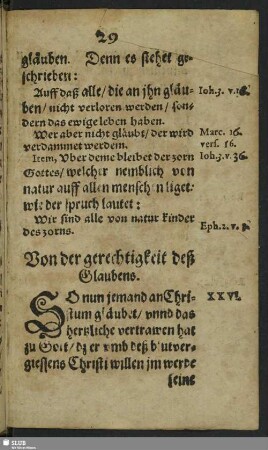 29
gläuben. Denn es stehet ge-
schrieben:
Auff daß alle/ die an jhn gläu- Ioh.3. v.16.
ben/ nicht verloren werden/ son-
dern das ewige leben haben.
Wer aber nicht gläubt/ der wird Marc. 16.
verdammet werdein. vers. 16.
Item, Vber deme bleibet der zorn Ioh.3. v. 36.
Gottes/ welcher nemblich von
natur auff allen menschen liget.
wie der spruch lautet:
Wir sind alle von natur kinder
des zorns. Eph. 2. v. 3.
Von der gerechtigkeit deß
Glaubens.
SO nun jemand an Chri- XXVI.
stum gläubet/ vnnd das
hertzliche vertrawen hat
zu Gott/ dz er vmb deß blutver-
giessens Christi willen jm werde
seine
SLUB